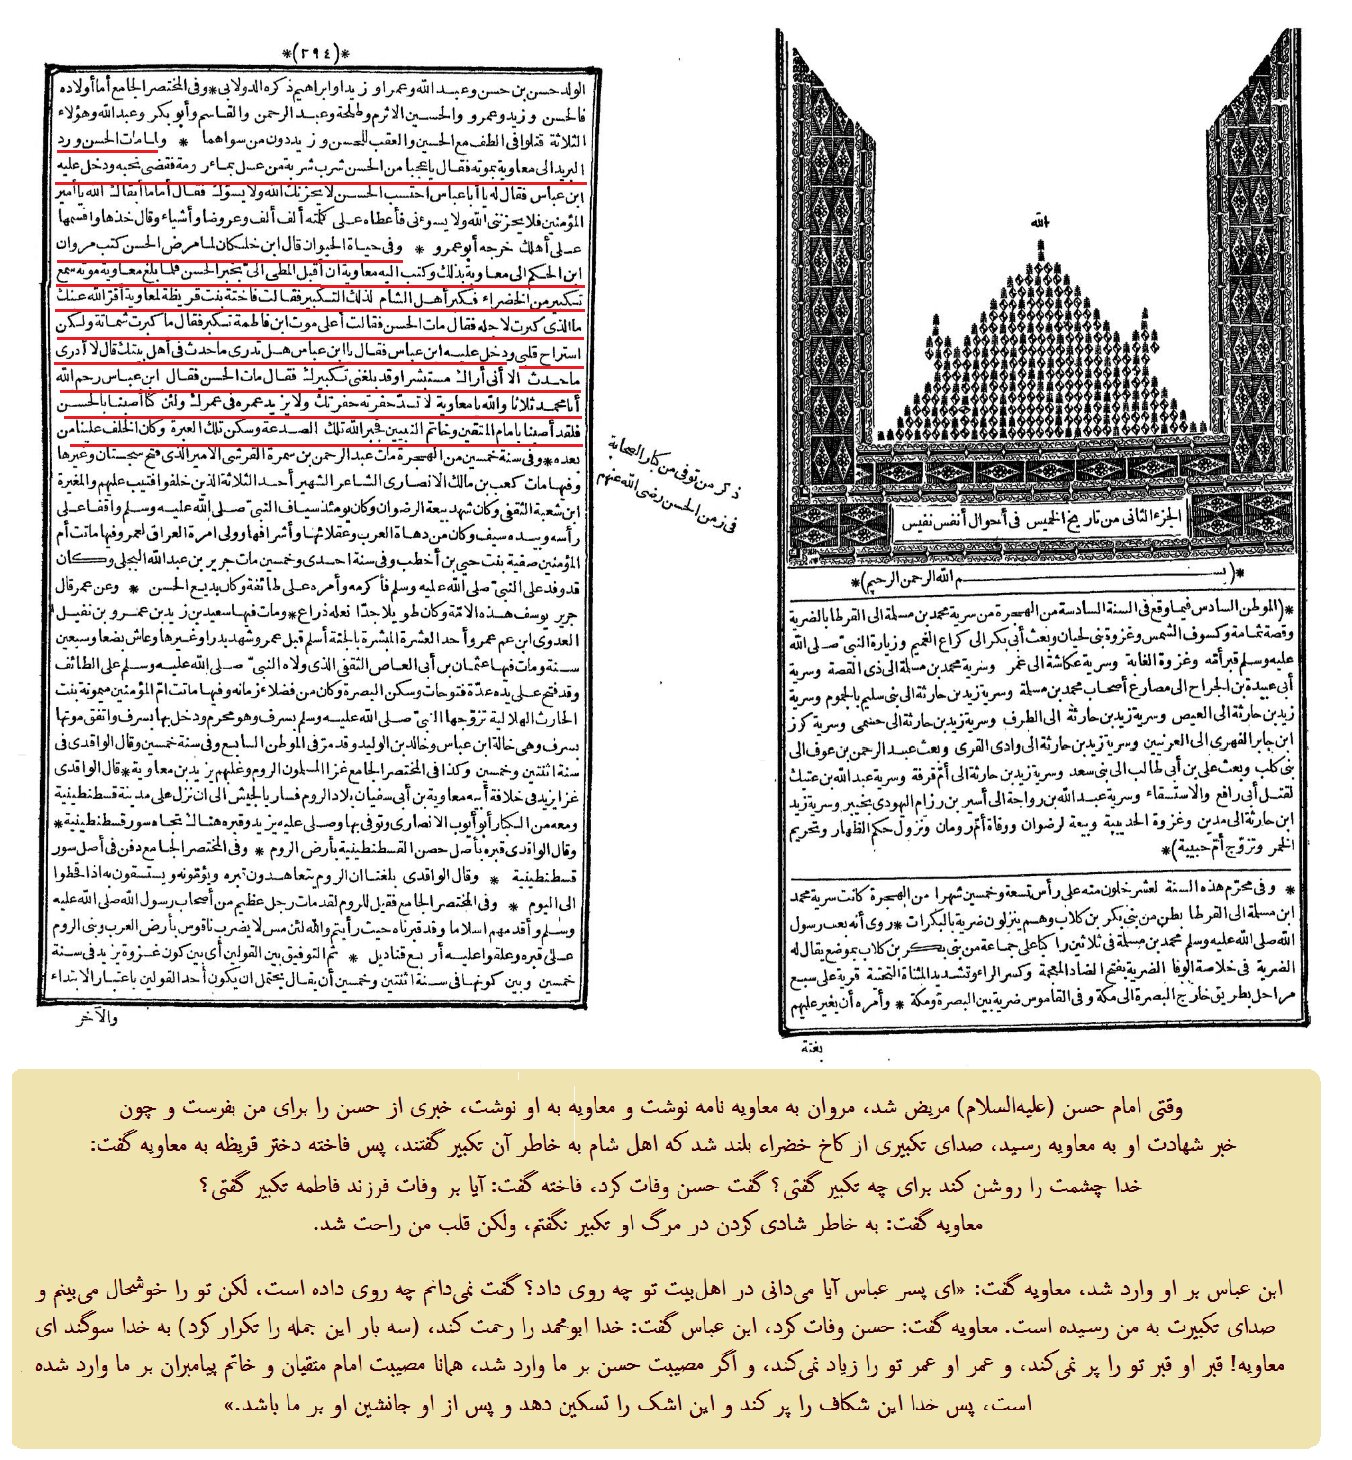 الله
الجزء الثانى من تاريخ الخميس فى أحوال أنفس نفيس
*(بسم الله الرحمن الرحيم)*
*(الموطن السادس فيما وقع فى السنة السادسة من الهجرة من سرية محمد بن مسلمة الى القرطا بالضرية
وقصة ثمامة وكسوف الشمس وغزوة بنى لحيان وبعث أبى بكر الى كراع الغميم وزيارة النبىّ صلى الله
عليه وسلم قبر أمّه وغزوة الغابة وسرية عكاشة الى غمر وسرية محمد بن مسلمة الى ذى القصة وسرية
أبى عبيدة بن الجراح الى مصارع أصحاب محمد بن مسلمة وسرية زيد بن حارثة الى بنى سليم بالجموم وسرية
زيد بن حارثة الى العيص وسرية زيد بن حارثة الى الطرف وسرية زيد بن حارثة الى حسمى وسرية كرز
ابن جابر الفهرى الى العرنيين وسرية زيد بن حارثة الى وادى القرى وبعث عبد الرحمن بن عوف الى
بنى كلب وبعث على بن أبى طالب الى بنى سعد وسرية زيد بن حارثة الى أمّ قرفة وسرية عبد الله بن عتيك
لقتل أبى رافع والاستسقاء وسرية عبد الله بن رواحة الى أسير بن رزام اليهودى بخيبر وسرية زيد
ابن حارثة الى مدين وغزوة الحديبية وبيعة لرضوان ووفاة أمّ رومان ونزول حكم الظهار وتحريم
الخمر وتزوّج أمّ حبيبة)*
* وفى محرّم هذه السنة لعشر خلون منه على رأس تسعة وخمسين شهرا من الهجرة كانت سرية محمد
ابن مسلمة الى القرطا بطن من بنى بكر بن كلاب وهم ينزلون ضرية بالبكرات * روى أنه بعث رسول
الله صلى الله عليه وسلم محمد بن مسلمة فى ثلاثين راكبا على جماعة من بنى بكر بن كلاب بموضع يقال له
الضرية فى خلاصة الوفا الضرية بفتح الضاد المعجمة وكسر الراء وتشديد المثناة التحتية قرية على سبع
مراحل بطريق خارج البصرة الى مكة وفى القاموس ضرية بين البصرة ومكة * وأمره أن يغير عليهم
بغتة
*(٢٩٤)*
الولد حسن بن حسن وعبد الله وعمرا وزيدا وابراهيم ذكره الدولابى * وفى المختصر الجامع أما أولاده
فالحسن وزيد وعمرو والحسين الاثرم وطلحة وعبد الرحمن والقاسم وأبو بكر وعبد الله وهؤلاء
الثلاثة قتلوا فى الطف مع الحسين والعقب للحسن وزيد دون من سواهما * ولما مات الحسن ورد
البريد الى معاوية بموته فقال يا عجبا من الحسن شرب شربة من عسل بماء رومة فقضى نحبه ودخل عليه
ابن عباس فقال له يا أبا عباس احتسب الحسن لا يحزنك الله ولا يسوؤك فقال أما ما أبقاك الله يا أمير
المؤمنين فلا يحزننى الله ولا يسوءنى فأعطاه على كلمته ألف ألف وعروضا وأشياء وقال خذها واقسمها
على أهلك خرجه أبو عمرو * وفى حياة الحيوان قال ابن خلكان لما مرض الحسن كتب مروان
ابن الحكم الى معاوية بذلك وكتب اليه معاوية ان أقبل المطى الىّ بخبر الحسن فلما بلغ معاوية موته سمع
تكبير من الخضراء فكبر أهل الشام لذلك التكبير فقالت فاختة بنت قريظة لمعاوية أقرّ الله عينك
ما الذى كبرت لاجله فقال مات الحسن فقالت أعلى موت ابن فاطمة تكبر فقال ما كبرت شماتة ولكن
استراح قلبى ودخل عليه ابن عباس فقال يا ابن عباس هل تدرى ما حدث فى أهل بيتك قال لا أدرى
ما حدث الا أنى أراك مستبشرا وقد بلغنى تكبيرك فقال مات الحسن فقال ابن عباس رحم الله
أبا محمد ثلاثا والله يا معاوية لا تسدّ حفرته حفرتك ولا يزيد عمره فى عمرك ولئن كا أصبنا بالحسن
فلقد أصبنا بامام المتقين وخاتم النبيين فجبر الله تلك الصدعة وسكن تلك العبرة وكان الخلف علينا من
بعده * وفى سنة خمسين من الهجرة مات عبد الرحمن بن سمرة القرشى الامير الذى فتح سجستان وغيرها
وفيها مات كعب بن مالك الانصارى الشاعر الشهير أحد الثلاثة الذين خلفوا فتيب عليهم والمغيرة
ابن شعبة الثقفى وكان شهد بيعة الرضوان وكان يومئذ سياف النبىّ صلى الله عليه وسلم واقفا على
رأسه وبيده سيف وكان من دهاة العرب وعقلائها وأشرافها وولى امرة العراق لعمر وفيها ماتت أم
المؤمنين صفية بنت حيى بن أخطب وفى سنة احدى وخمسين مات جرير بن عبد الله البجلى وكان
قد وفد على النبىّ صلى الله عليه وسلم فأكرمه وأمره على طائفة وكان بديع الحسن * وعن عمر قال
جرير يوسف هذه الامّة وكان طويلا جدّا نعله ذراع * ومات فيها سعيد بن زيد بن عمرو بن نفيل
العدوى ابن عم عمر وأحد العشرة المبشرة بالجنة أسلم قبل عمر وشهد بدرا وغيرها وعاش بضعا وسبعين
سنة ومات فيها عثمان بن أبى العاص الثقفى الذى ولاه النبىّ صلى الله عليه وسلم على الطائف
وقد فتح على يده عدّة فتوحات وسكن البصرة وكان من فضلاء زمانه وفيها ماتت امّ المؤمنين ميمونة بنت
الحارث الهلالية تزوّجها النبىّ صلى الله عليه وسلم بسرف وهو محرم ودخل بها بسرف واتفق موتها
بسرف وهى خالة ابن عباس وخالد بن الوليد وقد مرّ فى الموطن السابع وفى سنة خمسين وقال الواقدى فى
سنة اثنتين وخمسين وكذا فى المختصر الجامع غزا المسلمون الروم وعليهم يزيد بن معاوية * قال الواقدى
غزا يزيد فى خلافة أبيه معاوية بن أبى سفيان بلاد الروم فسار بالجيش الى ان نزل على مدينة قسطنطينية
ومعه من الكبار أبو أيوب الانصارى وتوفى بها وصلى عليه يزيد وقبره هناك تجاه سور قسطنطينية *
وقال الواقدى قبره بأصل حصن القسطنطينية بأرض الروم * وفى المختصر الجامع دفن فى أصل سور
قسطنطينية * وقال الواقدى بلغنا ان الروم يتعاهدون قبره ويرمّونه ويستسقون به اذا قحطوا
الى اليوم * وفى المختصر الجامع فقيل للروم لقد مات رجل عظيم من أصحاب رسول الله صلى الله عليه
وسلم وأقدمهم اسلاما وقد قبرناه حيث رأيتم والله لئن مس لا يضرب ناقوس بأرض العرب وبنى الروم
على قبره وعلقوا عليه أربع قناديل * ثم التوفيق بين القولين أى بين كون غزوة يزيد فى سنة
خمسين وبين كونها فى سنة اثنتين وخمسين أن يقال يحتمل ان يكون أحد القولين باعتبار الابتداء
والآخر
ذكر من توفى من كبار الصحابة
فى زمن الحسن رضى الله عنهم
وقتی امام حسن (علیه‌السلام) مریض شد، مروان به معاویه نامه نوشت و معاویه به او نوشت، خبری از حسن را برای من بفرست و چون
خبر شهادت او به معاویه رسید، صدای تکبیری از کاخ خضراء بلند شد که اهل شام به خاطر آن تکبیر گفتند، پس فاخته دختر قریظه به معاویه گفت:
خدا چشمت را روشن کند برای چه تکبیر گفتی؟ گفت حسن وفات کرد، فاخته گفت: آیا بر وفات فرزند فاطمه تکبیر گفتی؟
معاویه گفت: به خاطر شادی کردن در مرگ او تکبیر نگفتم، ولکن قلب من راحت شد.
ابن عباس بر او وارد شد، معاویه گفت: «ای پسر عباس آیا می‌دانی در اهل‌بیت تو چه روی داد؟ گفت نمی‌دانم چه روی داده است، لکن تو را خوشحال می‌بینم و
صدای تکبیرت به من رسیده است. معاویه گفت: حسن وفات کرد، ابن عباس گفت: خدا ابومحمد را رحمت کند، (سه بار این جمله را تکرار کرد) به خدا سوگند ای
معاویه! قبر او قبر تو را پر نمی‌کند، و عمر او عمر تو را زیاد نمی‌کند، و اگر مصیبت حسن بر ما وارد شد، همانا مصیبت امام متقیان و خاتم پیامبران بر ما وارد شده
است، پس خدا این شکاف را پر کند و این اشک را تسکین دهد و پس از او جانشین او بر ما باشد.»